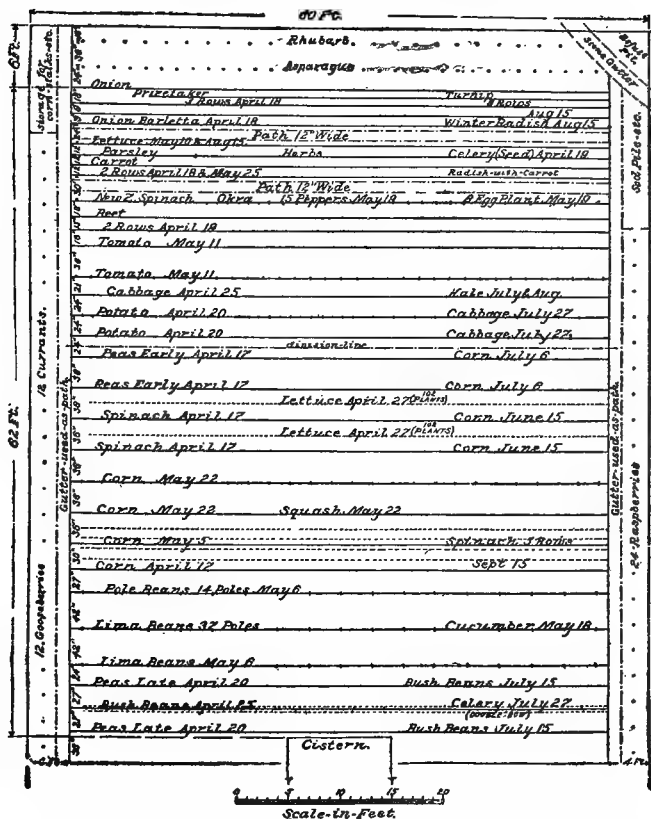 60 Ft.
6 Ft.
Rhubarb.
Asparagus
Refuse Pit
Stone Gutter
storage for corn-stalks-etc.
Onion
Prizetaker Turnip
3 Rows April 18 3 Rows
Aug 15
Onion Barletta April 18 Winter Radish Aug 15
Path 12" Wide
Lettuce May 10 & Aug 15
Parsley Herbs Celery (Seed) April 18
Carrot
2 Rows April 18 & May 25 Radish-with-Carrot
Path 12" Wide
New Z. Spinach Okra 15 Peppers May 18 8 Egg Plant May 18
Beet
2 Rows April 18
Tomato May 11
Tomato May 11
Cabbage April 25 Kale July & Aug.
Potato April 20 Cabbage July 27
Potato April 20 Cabbage July 27
division-line
Peas Early April 17 Corn July 6
Peas Early April 17 Corn July 6
Lettuce April 27 (108 PLANTS)
Spinach April 17 Corn June 15
Lettuce April 27 (108 PLANTS)
Spinach April 17 Corn June 15
Corn May 22
Corn May 22 Squash May 22
Corn May 5 Spinach 3 Rows
Corn April 17 Sept 15
Pole Beans 14 Poles May 6
Lima Beans 32 Poles Cucumber May 18
Lima Beans May 6
Peas Late April 20 Bush Beans July 15
Bush Beans April 25 Celery July 27
(DOUBLE-ROW)
Peas Late April 20 Bush Beans July 15
Cistern.
62 Ft.
12 Currants.
12 Gooseberries
Gutter-used-as-path.
Gutter-used-as-path
Sod Pile-etc.
24 Raspberries
4 Ft.
0 5 10 15 20
Scale-in-Feet.